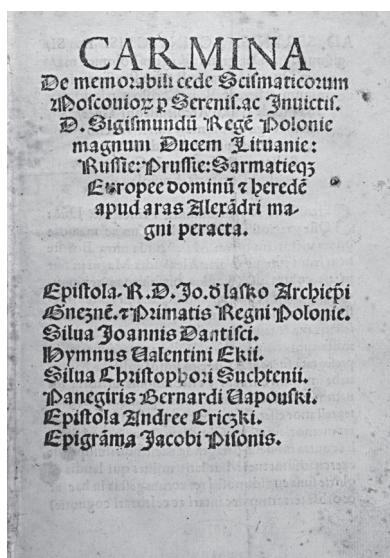 CARMINA
De memorabili cede Scismaticorum
Moscouioꝝ ꝑ Serenis. ac Inuictis.
D. Sigismundũ Regẽ Polonie
magnum Ducem Lituanie:
Russie: Prussie: Sarmatieqꝫ
Europee dominũ ⁊ heredẽ
apud aras Alexãdri ma-
gni peracta.
Epistola. R. D. Jo. đ lasko Archiep̃i
Gnezneñ. ⁊ Primatis Regni Polonie.
Silua Joannis Dantisci.
Hymnus Ualentini Ekii.
Silua Christophori Suchtenii.
Panegiris Bernardi Uapouski.
Epistola Andree Criczki.
Epigrãma Jacobi Pisonis.